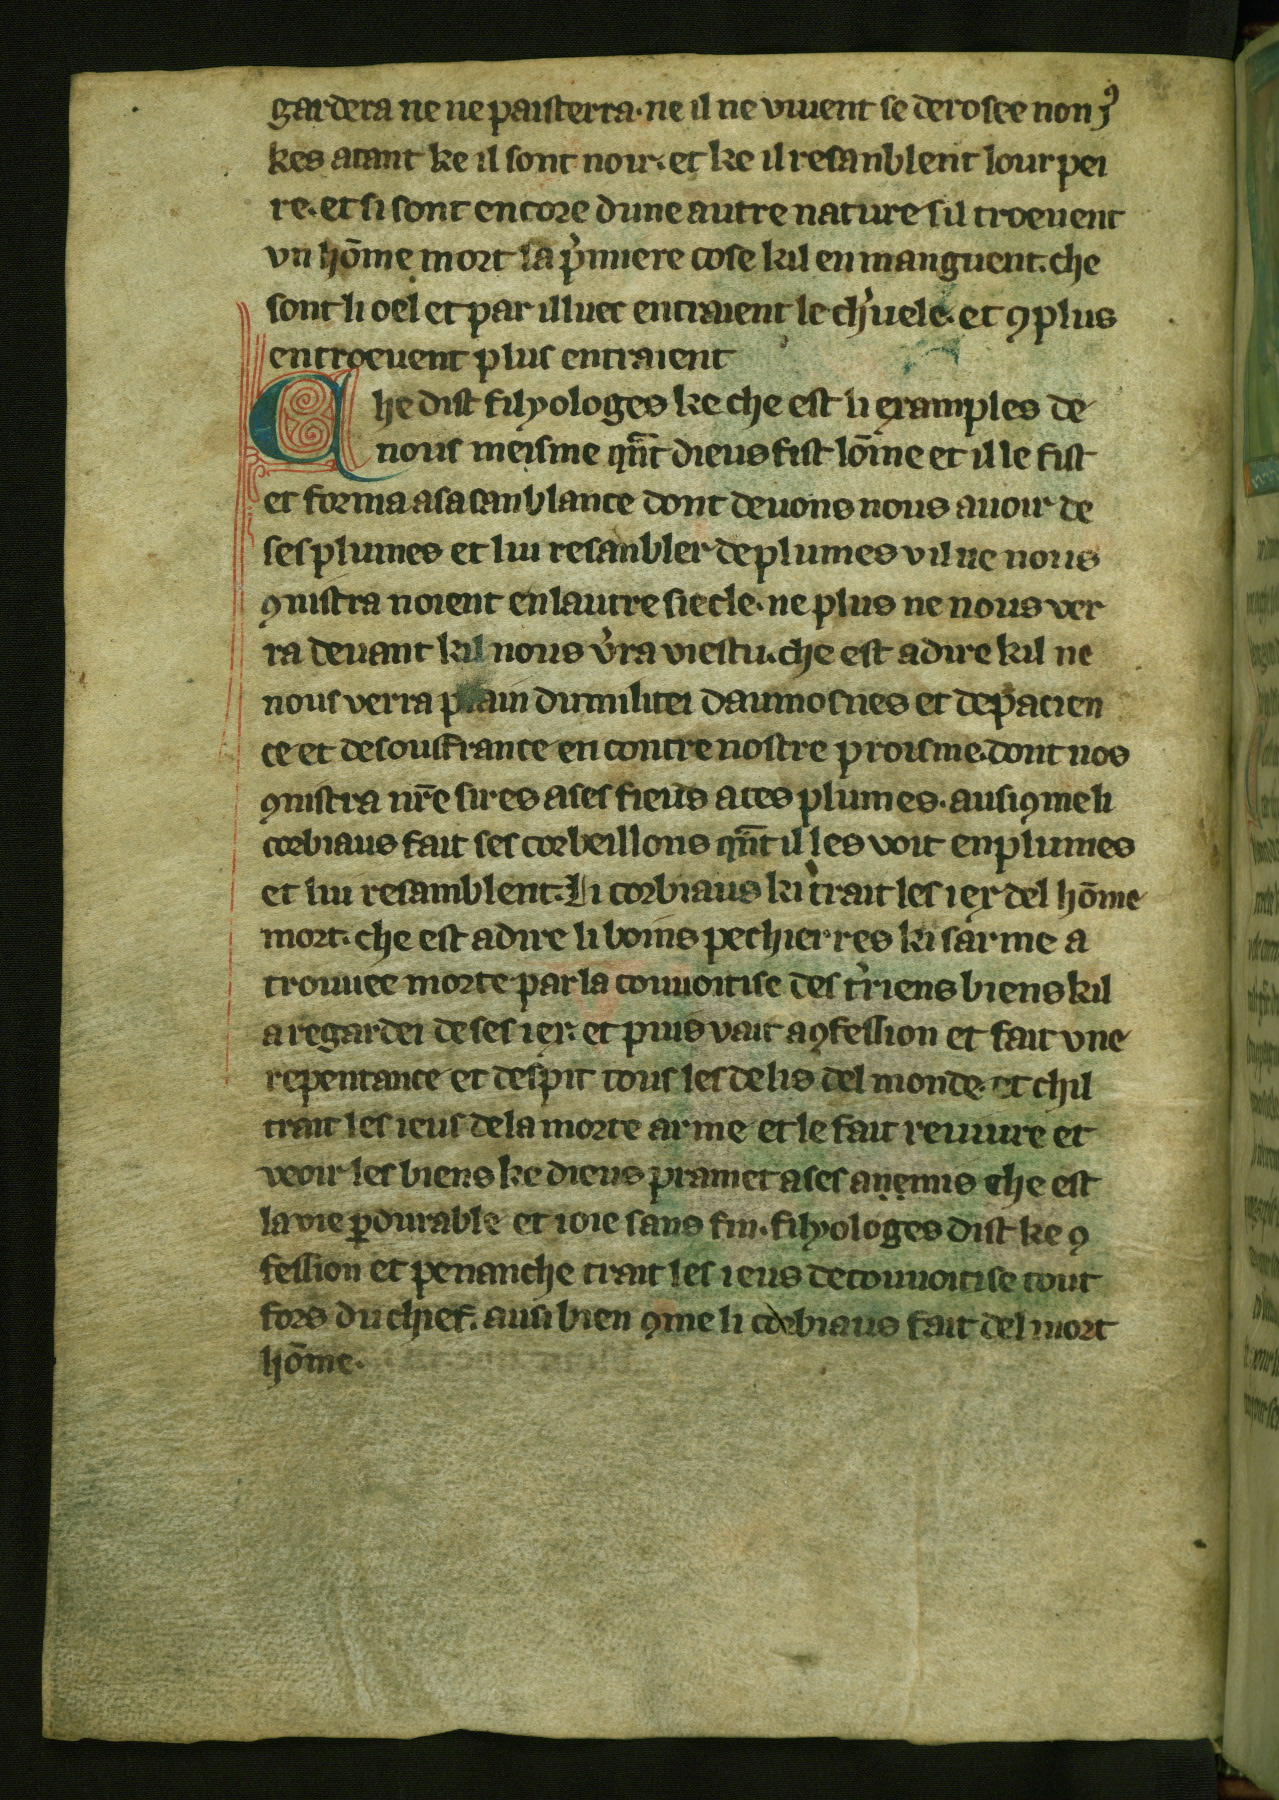 gardera ne ne paisterra· ne il ne viuent se de rosee non jꝰ
kes atant ke il sont noir· et ke il resanblent lour pei
re· et si sont encore dune autre nature sil troeuent
vn hōme mort la p'miere cose kil en manguent· che
sont li oel et par illuec entraient le ch'uele· et ꝯ plus
en troeuent plus entraient
Che dist filyologes ke che est li examples de
nous meisme qn̄t dieus fist lōme et il le fist
et forma a sa sanblance dont deuons nous auoir de
ses plumes et lui resanbler de plumes v il ne nous
ꝯnistra noient en lautre siecle· ne plus ne nous ver
ra deuant kil nous v'ra viestu· che est a dire kil ne
nous verra plain dumilitei daumosnes et de pacien
ce et de sousfrance en contre nostre proisme· dont nos
ꝯnistra nr̄e sires a ses fieus a ces plumes· ausi ꝯme li
corbiaus fait ses corbeillons qn̄t il les voit enplumes
et lui resamblent· Li corbiaus ki trait les iex del hōme
mort· che est a dire li boins pechierres ki sarme a
trouuee morte par la couuoitise des t'riens biens kil
a regardei de ses iex· et puis vait a ꝯfession et fait vne
repentance et despit tous les delis del monde· et chil
trait les ieus de la morte arme et le fait reuiure et
veoir les biens ke dieus pramet a ses anemis che est
la vie ꝑdurable et ioie sans fin· filyologes dist ke ꝯ
fession et penanche trait les ieus de couuoitise tout
fors du chief· ausi bien ꝯme li corbiaus fait del mort
hōme·